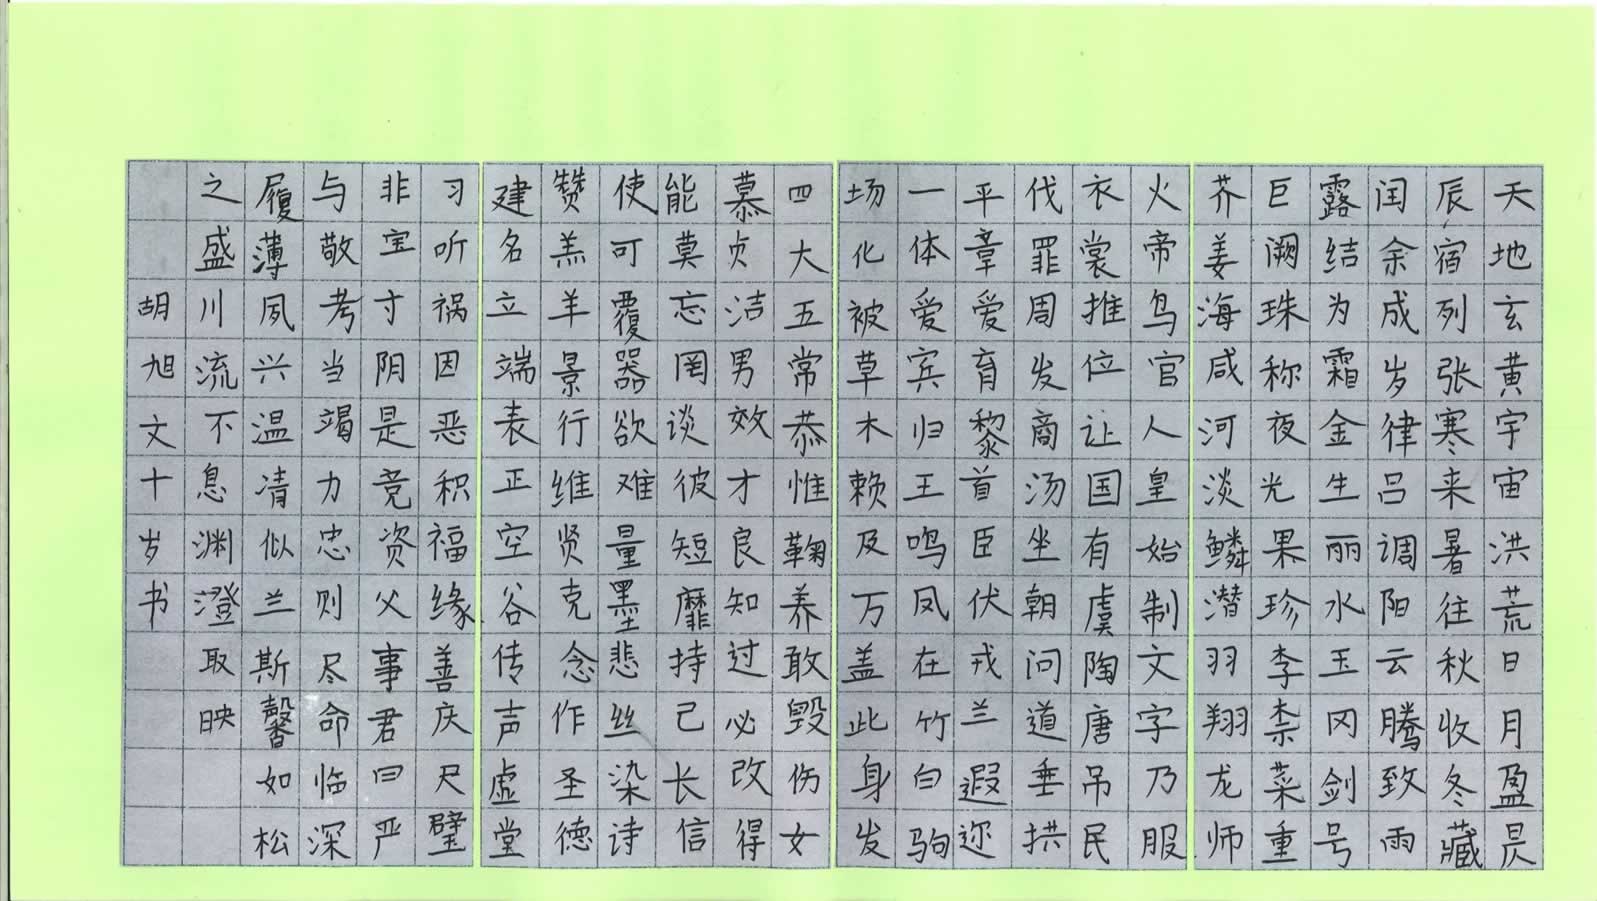 天地玄黄宇宙洪荒日月盈昃
辰宿列张寒来暑往秋收冬藏
闰余成岁律吕调阳云腾致雨
露结为霜金生丽水玉冈剑号
巨阙珠称夜光果珍李柰菜重
芥姜海咸河淡鳞潜羽翔龙师
火帝鸟官人皇始制文字乃服
衣裳推位让国有虞陶唐吊民
伐罪周发商汤坐朝问道垂拱
平章爱育黎首臣伏戎兰遐迩
一体爱宾归王鸣凤在竹白驹
场化被草木赖及万盖此身发
四大五常恭惟鞠养敢毁伤女
慕贞洁男效才良知过必改得
能莫忘罔谈彼短靡持己长信
使可覆器欲难量墨悲丝染诗
赞羔羊景行维贤克念作圣德
建名立端表正空谷传声虚堂
习听祸因恶积福缘善庆尺璧
非宝寸阴是竞资父事君曰严
与敬考当竭力忠则尽命临深
履薄夙兴温凊似兰斯馨如松
之盛川流不息渊澄取映
胡旭文十岁书